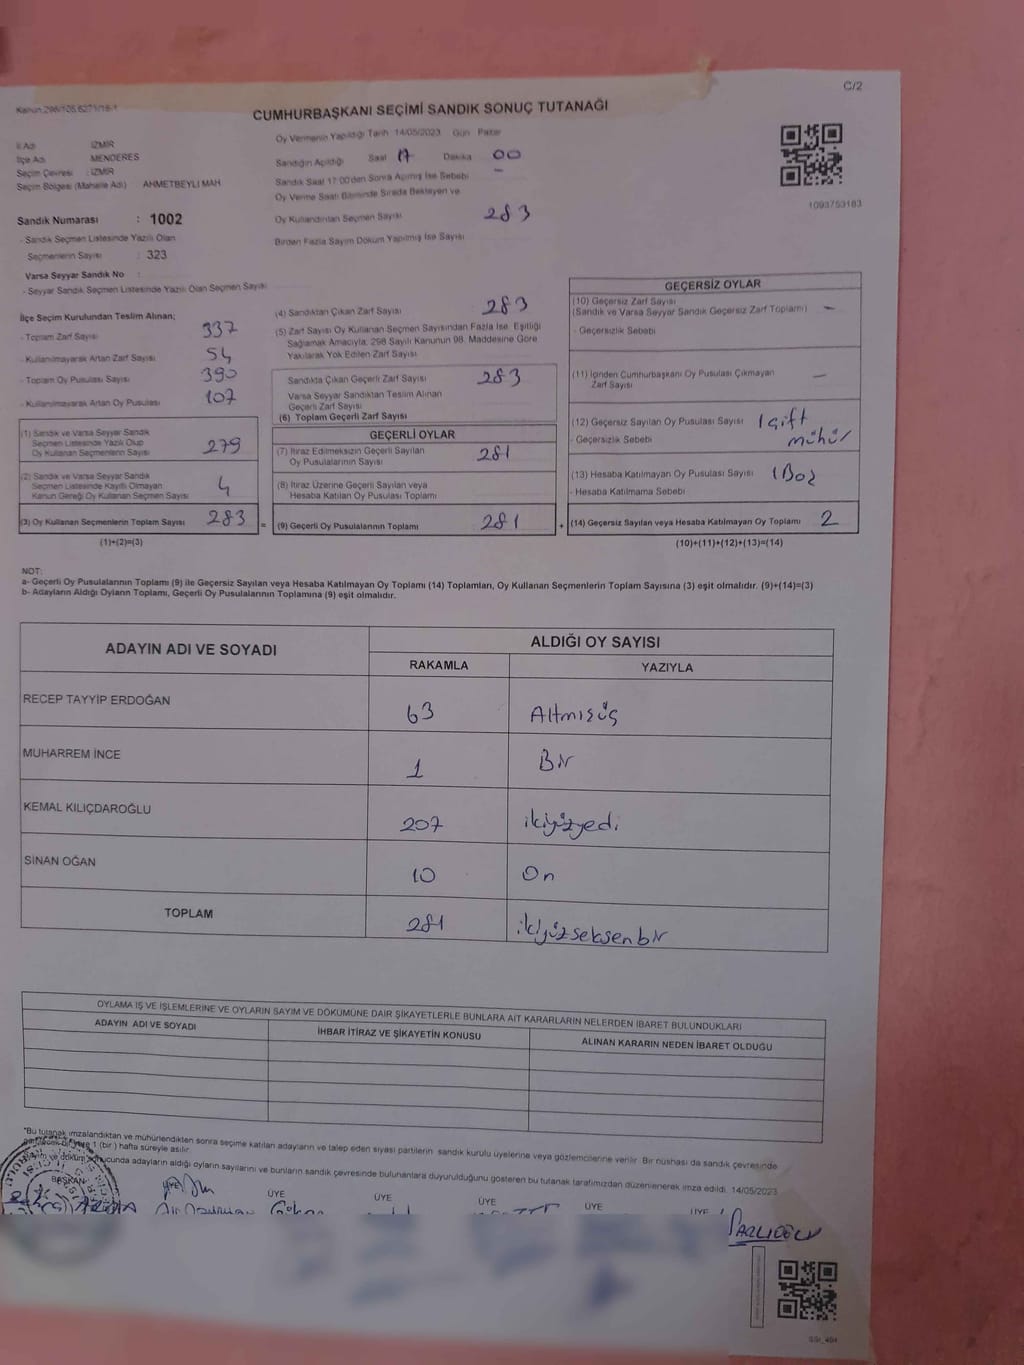 C/2
Kanun:298/105,6271/18-1
CUMHURBAŞKANI SEÇİMİ SANDIK SONUÇ TUTANAĞI
İl Adı : İZMİR
İlçe Adı MENDERES
Seçim Çevresi : İZMİR
Seçim Bölgesi (Mahalle Adı) AHMETBEYLİ MAH.
Oy Vermenin Yapıldığı Tarih 14/05/2023 Gün Pazar
Sandığın Açıldığı Saat 17 Dakika 00
Sandık Saat 17:00'den Sonra Açılmış İse Sebebi -
Oy Verme Saati Bitiminde Sırada Bekleyen ve
Oy Kullandırılan Seçmen Sayısı 283
Birden Fazla Sayım Döküm Yapılmış İse Sayısı
1093753163
Sandık Numarası : 1002
- Sandık Seçmen Listesinde Yazılı Olan
Seçmenlerin Sayısı : 323
Varsa Seyyar Sandık No :
- Seyyar Sandık Seçmen Listesinde Yazılı Olan Seçmen Sayısı
İlçe Seçim Kurulundan Teslim Alınan;
- Toplam Zarf Sayısı 337
- Kullanılmayarak Artan Zarf Sayısı 54
- Toplam Oy Pusulası Sayısı 390
- Kullanılmayarak Artan Oy Pusulası 107
(1) Sandık ve Varsa Seyyar Sandık
Seçmen Listesinde Yazılı Olup
Oy Kullanan Seçmenlerin Sayısı 279
(2) Sandık ve Varsa Seyyar Sandık
Seçmen Listesinde Kayıtlı Olmayan
Kanun Gereği Oy Kullanan Seçmen Sayısı 4
(3) Oy Kullanan Seçmenlerin Toplam Sayısı 283
(1)+(2)=(3)
(4) Sandıktan Çıkan Zarf Sayısı 283
(5) Zarf Sayısı Oy Kullanan Seçmen Sayısından Fazla İse, Eşitliği
Sağlamak Amacıyla, 298 Sayılı Kanunun 98. Maddesine Göre
Yakılarak Yok Edilen Zarf Sayısı
Sandıkta Çıkan Geçerli Zarf Sayısı 283
Varsa Seyyar Sandıktan Teslim Alınan
Geçerli Zarf Sayısı
(6) Toplam Geçerli Zarf Sayısı
GEÇERLİ OYLAR
(7) İtiraz Edilmeksizin Geçerli Sayılan
Oy Pusulalarının Sayısı 281
(8) İtiraz Üzerine Geçerli Sayılan veya
Hesaba Katılan Oy Pusulası Toplamı
=
(9) Geçerli Oy Pusulalarının Toplamı 281
+
GEÇERSİZ OYLAR
(10) Geçersiz Zarf Sayısı
(Sandık ve Varsa Seyyar Sandık Geçersiz Zarf Toplamı) -
- Geçersizlik Sebebi
(11) İçinden Cumhurbaşkanı Oy Pusulası Çıkmayan
Zarf Sayısı -
(12) Geçersiz Sayılan Oy Pusulası Sayısı 1 çift
- Geçersizlik Sebebi mühür
(13) Hesaba Katılmayan Oy Pusulası Sayısı 1 Boş
- Hesaba Katılmama Sebebi
(14) Geçersiz Sayılan veya Hesaba Katılmayan Oy Toplamı 2
(10)+(11)+(12)+(13)=(14)
NOT:
a- Geçerli Oy Pusulalarının Toplamı (9) ile Geçersiz Sayılan veya Hesaba Katılmayan Oy Toplamı (14) Toplamları, Oy Kullanan Seçmenlerin Toplam Sayısına (3) eşit olmalıdır. (9)+(14)=(3)
b- Adayların Aldığı Oyların Toplamı, Geçerli Oy Pusulalarının Toplamına (9) eşit olmalıdır.
ADAYIN ADI VE SOYADI
ALDIĞI OY SAYISI
RAKAMLA YAZIYLA
RECEP TAYYİP ERDOĞAN 63 Altmışüç
MUHARREM İNCE 1 Bir
KEMAL KILIÇDAROĞLU 207 ikiyüzyedi
SİNAN OĞAN 10 On
TOPLAM 281 ikiyüzseksenbir
OYLAMA İŞ VE İŞLEMLERİNE VE OYLARIN SAYIM VE DÖKÜMÜNE DAİR ŞİKAYETLERLE BUNLARA AİT KARARLARIN NELERDEN İBARET BULUNDUKLARI
ADAYIN ADI VE SOYADI İHBAR İTİRAZ VE ŞİKAYETİN KONUSU ALINAN KARARIN NEDEN İBARET OLDUĞU
"Bu tutanak imzalandıktan ve mühürlendikten sonra seçime katılan adayların ve talep eden siyasi partilerin sandık kurulu üyelerine veya gözlemcilerine verilir. Bir nüshası da sandık çevresinde
1 (bir) hafta süreyle asılır.
adayların aldığı oyların sayılarını ve bunların sandık çevresinde bulunanlara duyurulduğunu gösteren bu tutanak tarafımızdan düzenlenerek imza edildi. 14/05/2023
BAŞKAN ÜYE ÜYE ÜYE ÜYE ÜYE ÜYE